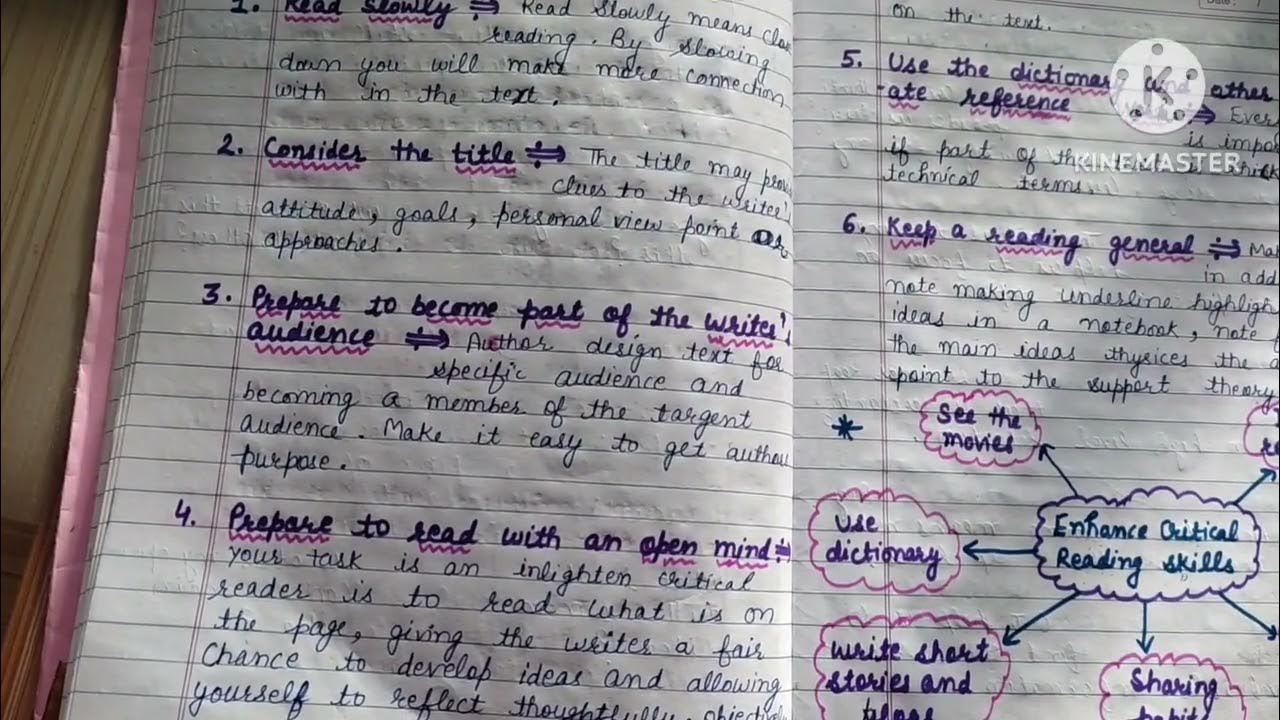 1. Read slowly ⇒ Read slowly means
reading. By slowing
down you will make more connection
with in the text.
2. Consider the title ⇒ The title may
clues to the writer's
attitude, goals, personal view point or
approaches.
3. Prepare to become part of the writer's
audience ⇒ Author design text for
specific audience and
becoming a member of the targent
audience. Make it easy to get author
purpose.
4. Prepare to read with an open mind ⇒
your task is an inlighten critical
reader is to read what is on
the page, giving the writes a fair
Chance to develop ideas and allowing
yourself to reflect thoughtfully,
on the text.
5. Use the dictionary and other
ate reference ⇒
is
if part of
technical terms.
6. Keep a reading general ⇒
in
note making underline
ideas in a notebook, note
the main ideas thysices the
point to the support theory
* See the
movies
Use
dictionary
Enhance Critical
Reading skills
Write short
stories and
Sharing
KINEMASTER